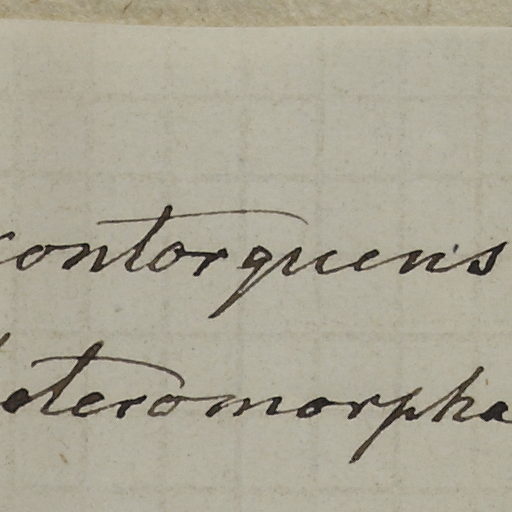 contorquens
heteromorpha